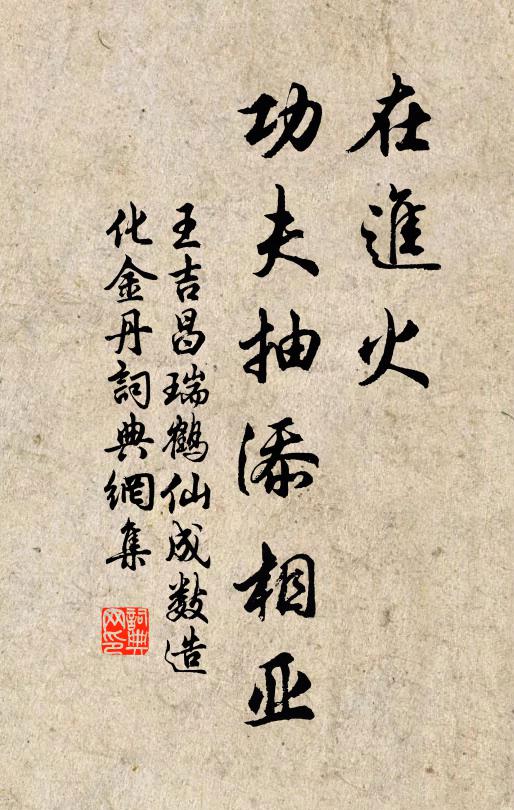 在進火
功夫抽添相亚
王吉昌瑞鶴仙成數造
化金丹詞典網集
詞典
网印